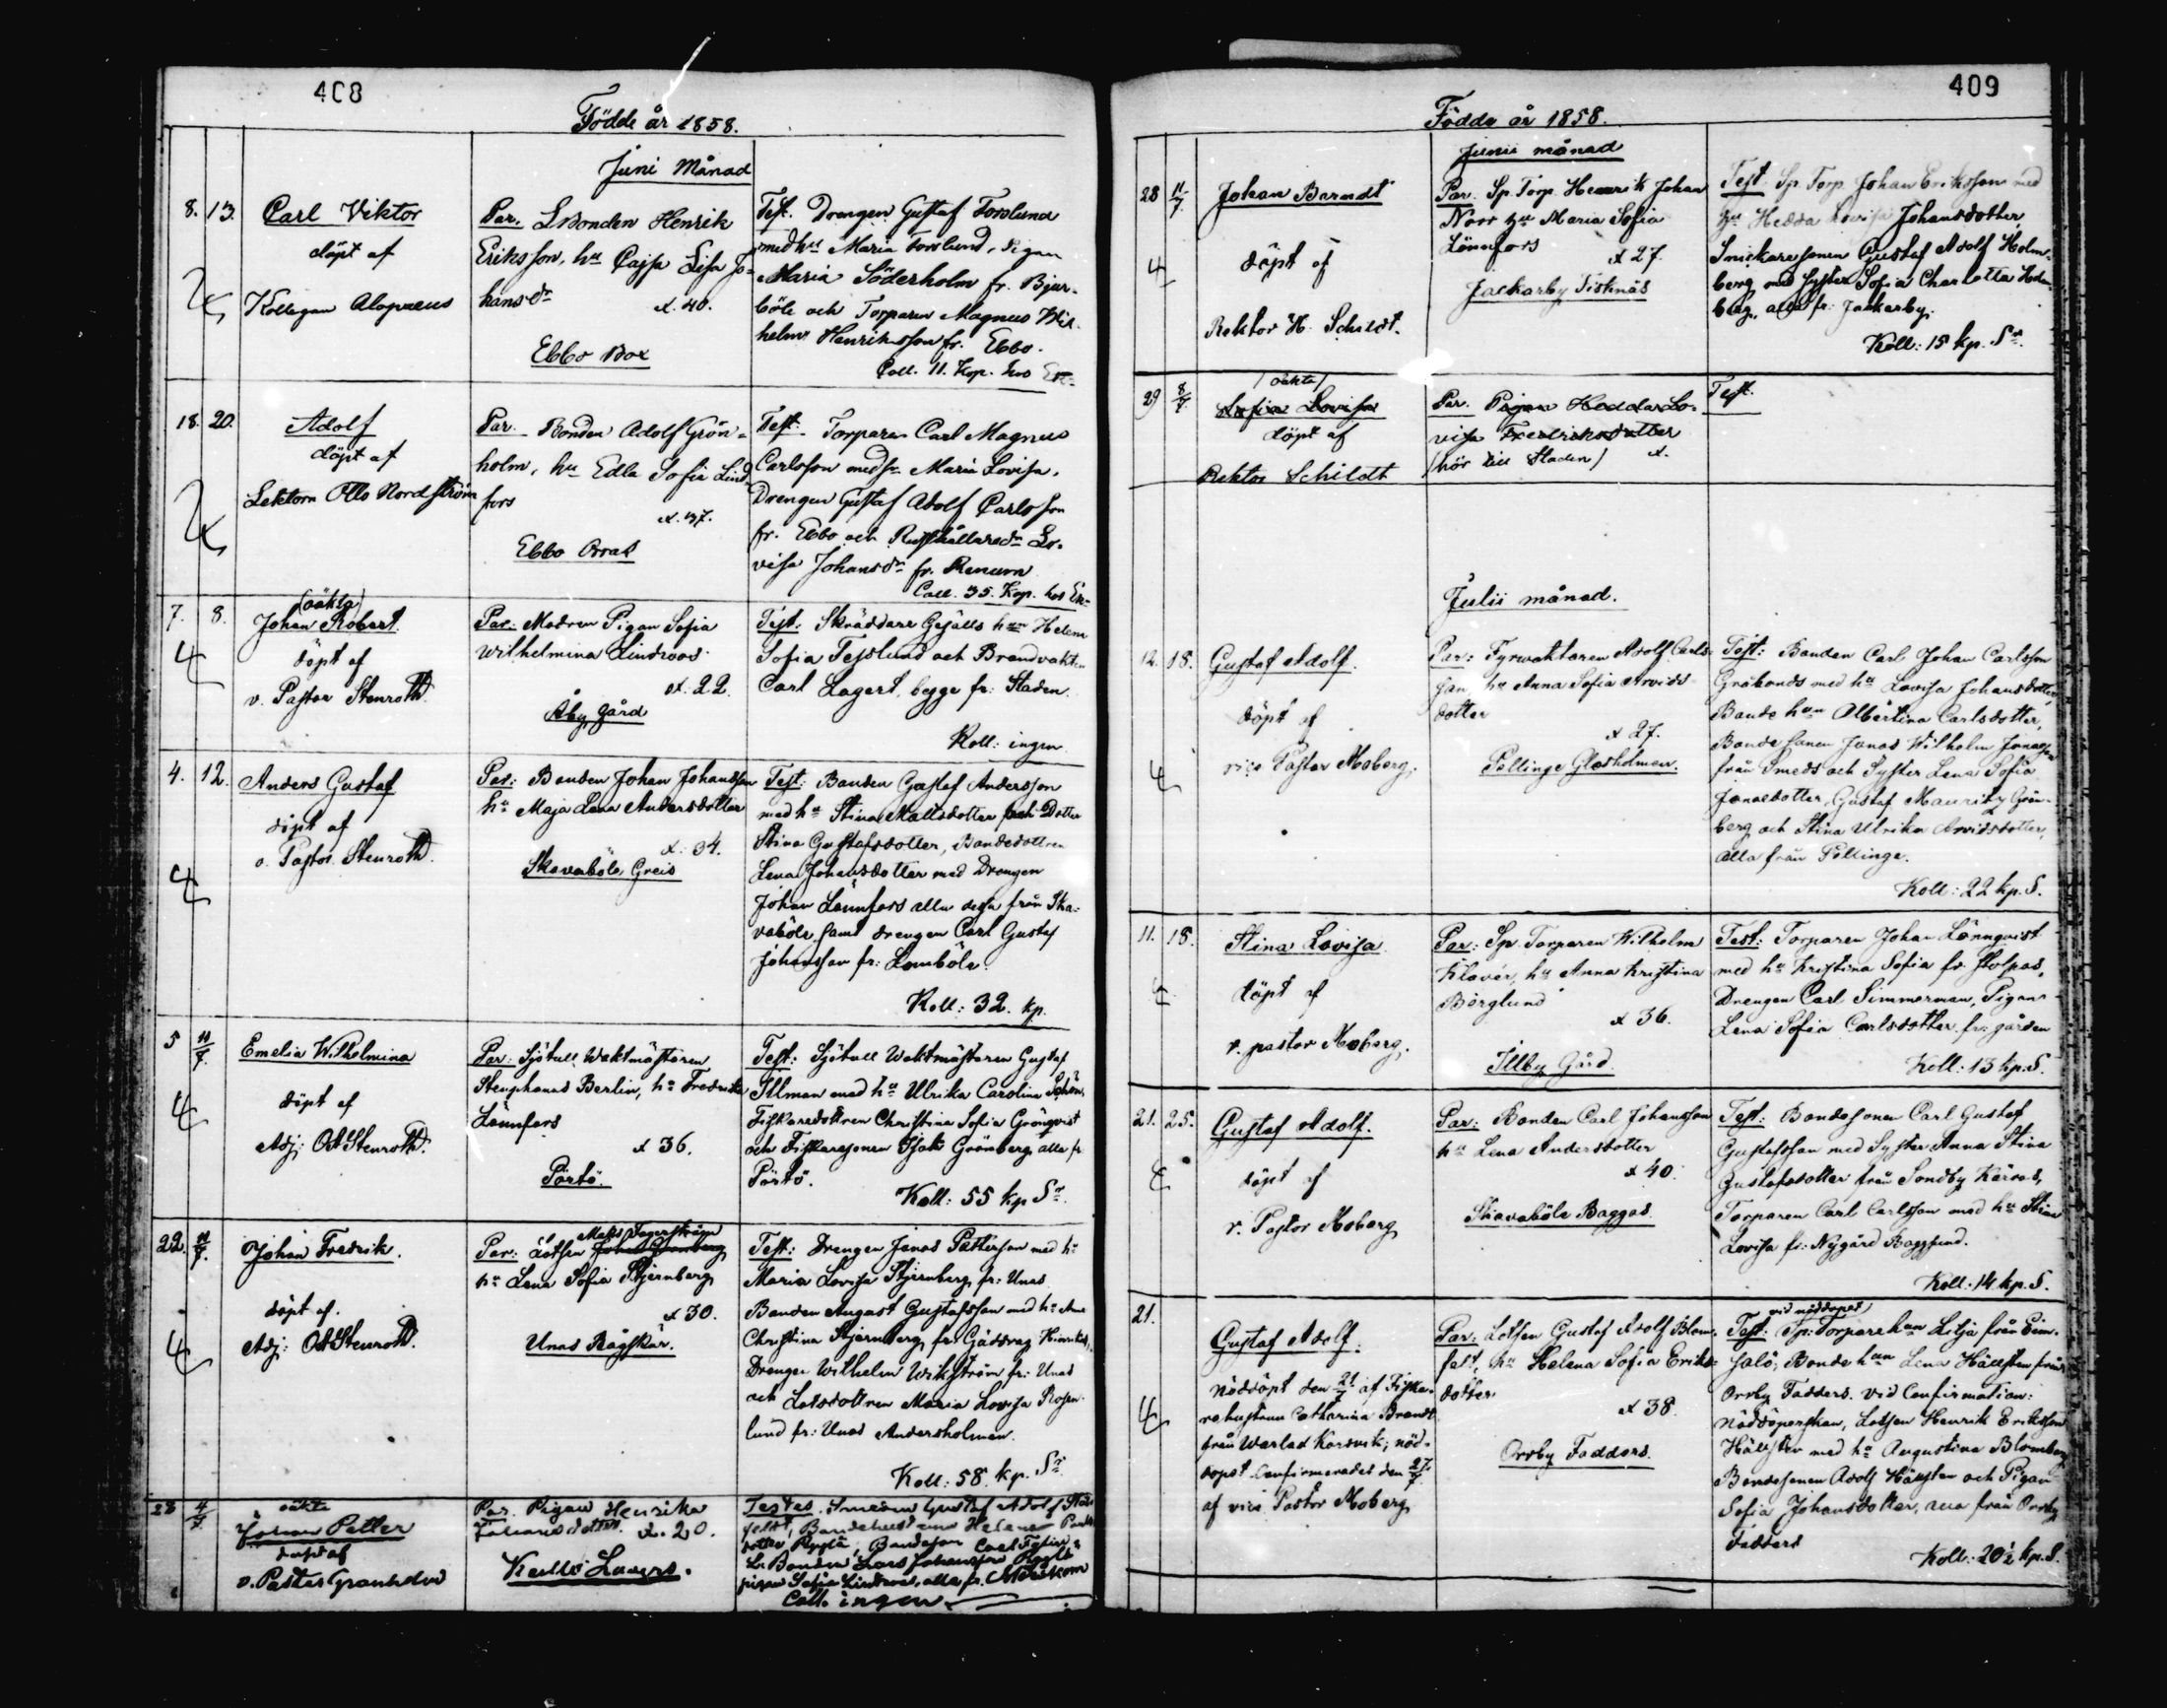 408
Födde år 1858.
Juni Månad
8. 13. Carl Viktor
döpt af
Kollegan Alopaeus
Par. Bonden Henrik
Eriksson, hu Cajsa Lisa Jo-
hansdr
40.
Ebbo Box
Test. Drengen Gustaf Forslund
med hu Maria Forslund, Pigan
Maria Söderholm fr. Bjur-
böle och Torparen Magnus Wil-
helm Henriksson fr. Ebbo.
Coll. 11. Kop. hos
18. 20. Adolf
döpt af
Lektorn Otto Nordström
Par. Bonden Adolf Grön-
holm, hu Edla Sofia Lind-
fors
37.
Ebbo Orras
Test: Torparen Carl Magnus
Carlsson med hu Maria Lovisa,
Drengen Gustaf Adolf Carlsson
fr. Ebbo och Rusthållaredr Lo-
visa Johansdr fr. Renum
Coll. 35. Kop. hos
7. 8. (oäkta)
Johan Robert
döpt af
v. Pastor Stenroth
Par: Modren Pigan Sofia
Wilhelmina Lindroos
22.
Åby gård
Test: Skräddare Gesälls hun Helena
Sofia Feslund och Brandvakten
Carl Lagert, begge fr: Staden
Koll: ingen
4. 12. Anders Gustaf
döpt af
v. Pastor Stenroth
Par: Bonden Johan Johansson
hu Maja Lena Andersdotter
34.
Skavaböle Greis
Test: Bonden Gustaf Andersson
med hu Stina Mattsdotter och Dotter
Stina Gustafsdotter, Bondedottren
Lena Johansdotter med Drengen
Johan Lönnfors alla dessa från Ska-
vaböle, samt drengen Carl Gustaf
Johansson fr: Lomböle.
Koll: 32. kp.
5 11/7. Emelia Wilhelmina
döpt af
Adj: O.A. Stenroth.
Par: Sjötull Waktmästaren
Stenphanus Berlin, hu Fredrika
Lönnfors
36.
Pörtö.
Test: Sjötull Waktmästaren Gustaf
Illman med hu Ulrika Carolina
Fiskaredottren Christina Sofia Grönqvist
och Fiskaresonen Isak Grönberg alla fr
Pörtö.
Koll: 55 kp Sr.
22. 11/7. Johan Fredrik.
döpt af.
Adj: O.A. Stenroth.
Mats Fagerström
Par: Lotsen Johan Stjernberg
hu Lena Sofia Stjernberg
30.
Unas Rågskär.
Test: Drengen Jonas Pettersson med hu
Maria Lovisa Stjernberg fr: Unas
Bonden August Gustafsson med hu Ana
Christina Stjernberg fr: Gäddrag
Drengen Wilhelm Wikström fr: Unas
och Lotsdottren Maria Lovisa Rosen-
lund fr: Unas Andersholmen.
Koll: 58. kp. Sr.
23 4/7 oäkta
Johan Petter
döpt af
v. Pastor Granholm
Par. Pigan Henrika
Johansdotter. 20.
Test. Gustaf Adolf
Bondehustrun Helena
Bondeson Carl
Bonden Lars Johansson
pigan Sofia alla fr.
Coll. ingen
409
Födde år 1858.
Junii månad
28 11/7. Johan Berndt
döpt af
Rektor H. Schildt.
Par. Sp. Torp. Henrik Johan
Norr hu Maria Sofia
Lönnfors 27.
Jackarby Tisknäs
Test. Sp. Torp. Johan Eriksson med
hu Hedda Lovisa Johansdotter,
Snickaresonen Gustaf Adolf Holm-
berg med Syster Sofia Charlotta Holm-
berg, alla fr. Jackarby.
Koll: 15 kp. Sr.
29 8/7. (oäkta)
Sofia Lovisa
döpt af
Rektor Schildt
Par. Pigan Hedda Lo-
visa Fredriksdotter
(hör till Staden)
Test.
Julii månad.
12. 18. Gustaf Adolf.
döpt af
vice Pastor Moberg.
Par: Fyrwaktaren Adolf Carls-
son, hu Anna Sofia Arvids-
dotter
27.
Pellinge Glosholmen.
Test: Bonden Carl Johan Carlsson
Gråbonds med hu Lovisa Johansdotter,
Bonde hun Albertina Carlsdotter,
Bonde sonen Jonas Wilhelm Jonasson
från Smeds och Syster Lena Sofia
Jonasdotter, Gustaf Mauritz Grön-
berg och Stina Ulrika Arvidsdotter,
alla från Pellinge.
Koll: 22 kp. S.
11. 18. Stina Lovisa
döpt af
v. pastor Moberg.
Par: Sp. Torparen Wilhelm
Klavér, hu Anna Kristina
Berglund
36.
Illby Gård.
Test: Torparen Johan Lönnqvist
med hu Kristina Sofia fr. Stolpas,
Drengen Carl Simmerman, Pigan
Lena Sofia Carlsdotter, fr: gården
Koll: 13 kp. S.
21. 25. Gustaf Adolf.
döpt af
v. Pastor Moberg
Par: Bonden Carl Johansson
hu Lena Andersdotter
40.
Skavaböle Baggas
Test: Bondesonen Carl Gustaf
Gustafsson med Syster Anna Stina
Gustafsdotter från Sondby Kärros,
Torparen Carl Carlsson med hu Stina
Lovisa fr: Nygård Baggsund.
Koll: 14 kp. S.
21. Gustaf Adolf.
nöddöpt den 21/7 af Fiska-
rehustrun Catharina Brandt
från Warlax Korsvik; nöd-
dopet Confirmerades den 27/7
af vice Pastor Moberg
Par: Lotsen Gustaf Adolf Blom-
felt, hu Helena Sofia Eriks-
dotter
38.
Orrby Fadders.
vid nöddopet)
Test: Sp: Torparehun Lilja från Eim-
salö, Bonde hun Lena Hällsten från
Orrby Fadders. Vid Confirmation:
nöddöperskan, Lotsen Henrik Eriksson
Hällsten med hu Augustina Blomberg
Bondesonen Adolf Hällsten och Pigan
Sofia Johansdotter, alla från Orrby
Fadders
Koll: 20½ kp. S.